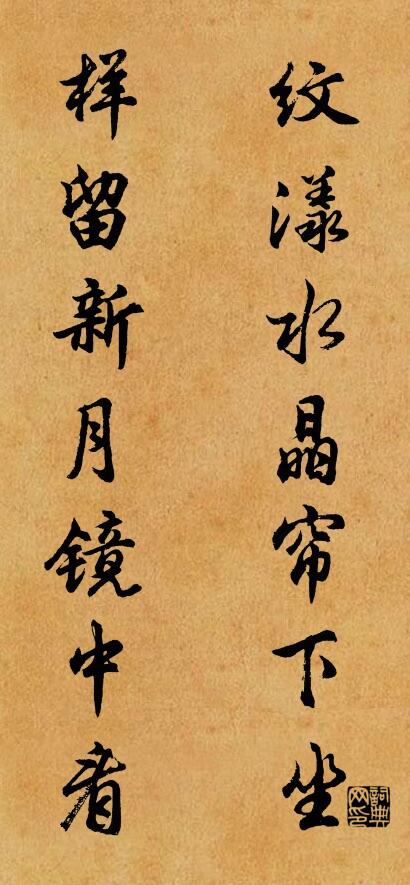 纹漾水晶帘下坐
样留新月镜中看
詞典
网印